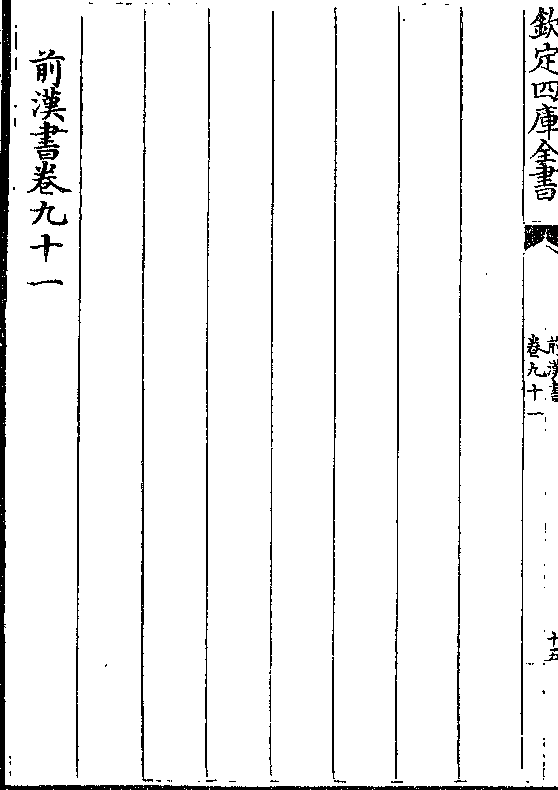 欽定四庫全書
前漢書
卷九十一
十五
前漢書卷九十一